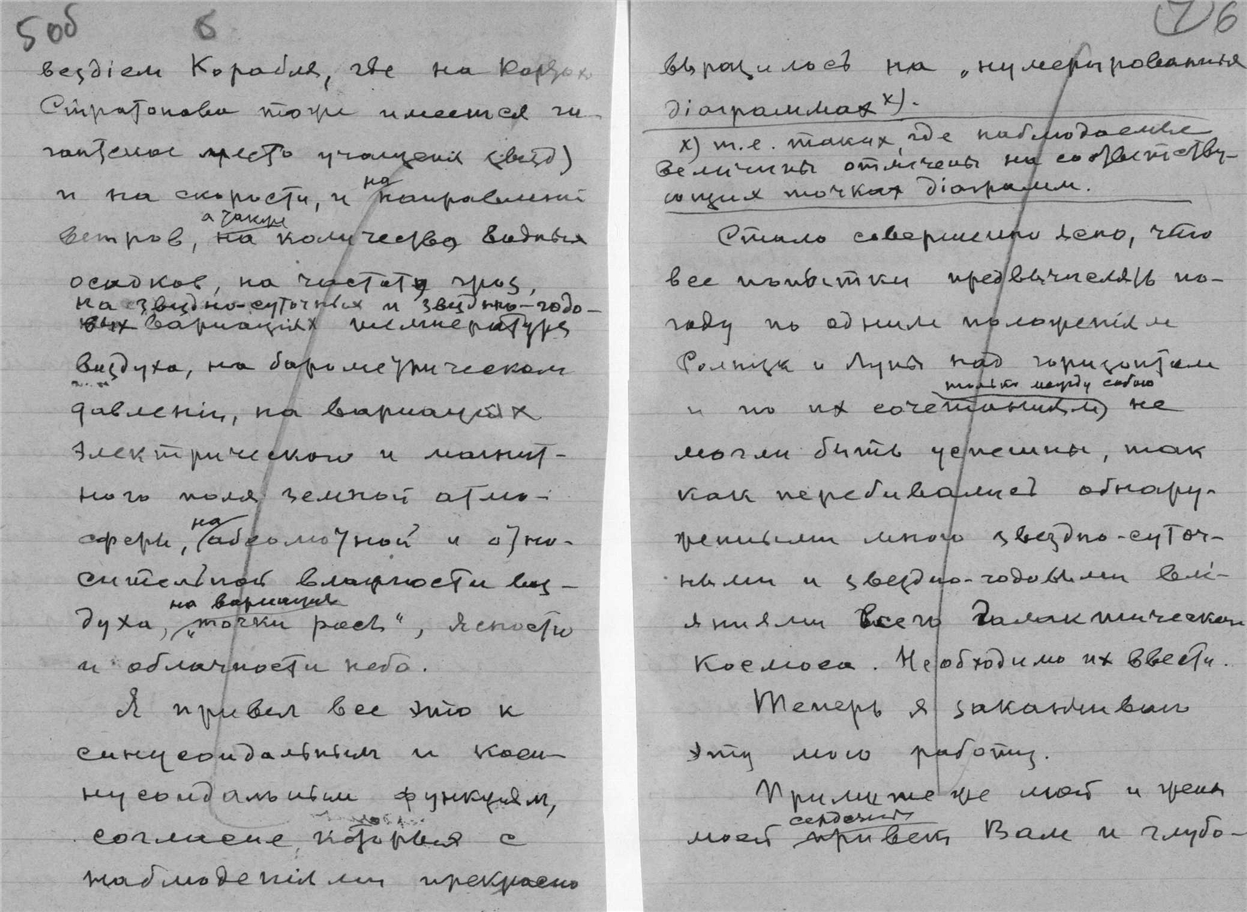 5 об
6
вездiем Корабля, где на картах
Стратонова тоже имеется ги-
гантское место учащения звезд)
и на скорости, и на направленiи
ветров, а также на количества водных
осадков, на частоту гроз,
на звездно-суточных и звездно-годо-
вых варiацiях температуры
воздуха, на барометрическом
давленiи, на варiацiях
электрического и магнит-
ного поля земной атмо-
сферы, на абсолютной и отно-
сительной влажности воз-
духа, на варiациях „точки росы“, ясности
и облачности неба.
Я привел все это к
синусоидальным и коси-
нусоидальным функцiям,
согласие которых с
наблюденiями прекрасно
7 6
выразилось на „нумерированных
дiаграммах х).
х) т.е. таких, где наблюдаемые
величины отмечены на соответству-
ющих точках дiаграмм.
Стало совершенно ясно, что
все попытки предвычислять по-
году по одним положенiям
Солнца и Луны над горизонтом
и по их сочетанiям только между собою не
могли быть успешны, так
как перебивались обнару-
женными мною звездно-суточ-
ными и звездно-годовыми влi-
янiями всего Галактическаго
Космоса. Необходимо их ввести.
Теперь я заканчиваю
эту мою работу.
Примите же мой и жены
моей сердечный привет Вам и глубо-